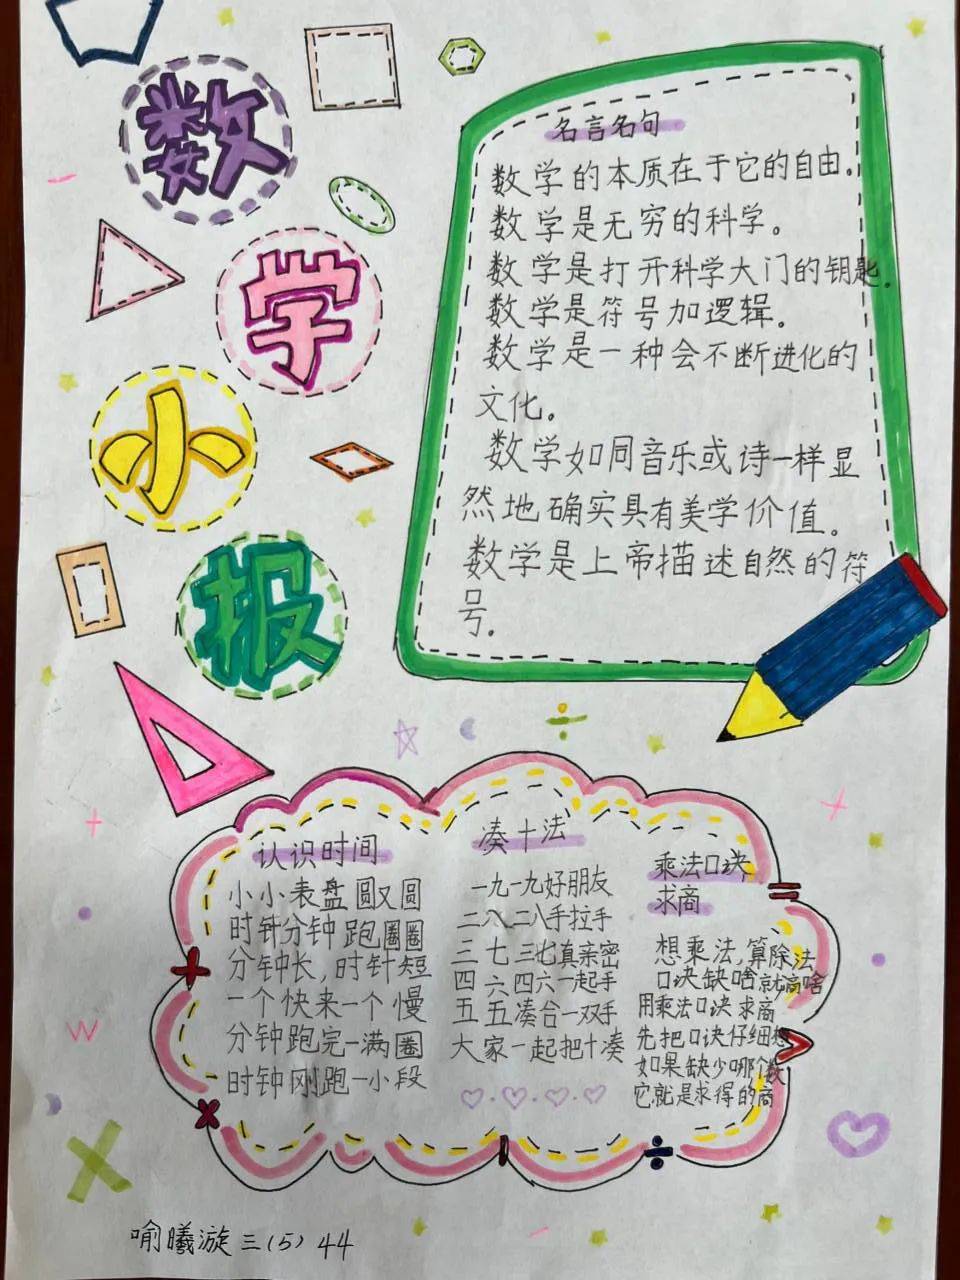 数学小报
名言名句
数学的本质在于它的自由。
数学是无穷的科学。
数学是打开科学大门的钥匙。
数学是符号加逻辑。
数学是一种会不断进化的
文化。
数学如同音乐或诗一样显
然地确实具有美学价值。
数学是上帝描述自然的符
号。
认识时间
小小表盘圆又圆
时针分钟跑圈圈
分钟长,时针短
一个快来一个慢
分钟跑完一满圈
时钟刚跑一小段
凑十法
一九一九好朋友
二八二八手拉手
三七三七真亲密
四六四六一起手
五五凑合一双手
大家一起把十凑
乘法口诀
求商
想乘法,算除法
口诀缺啥就商啥
用乘法口诀求商
先把口诀仔细想
如果缺少哪个数
它就是求得的商
喻曦漩 三(5) 44